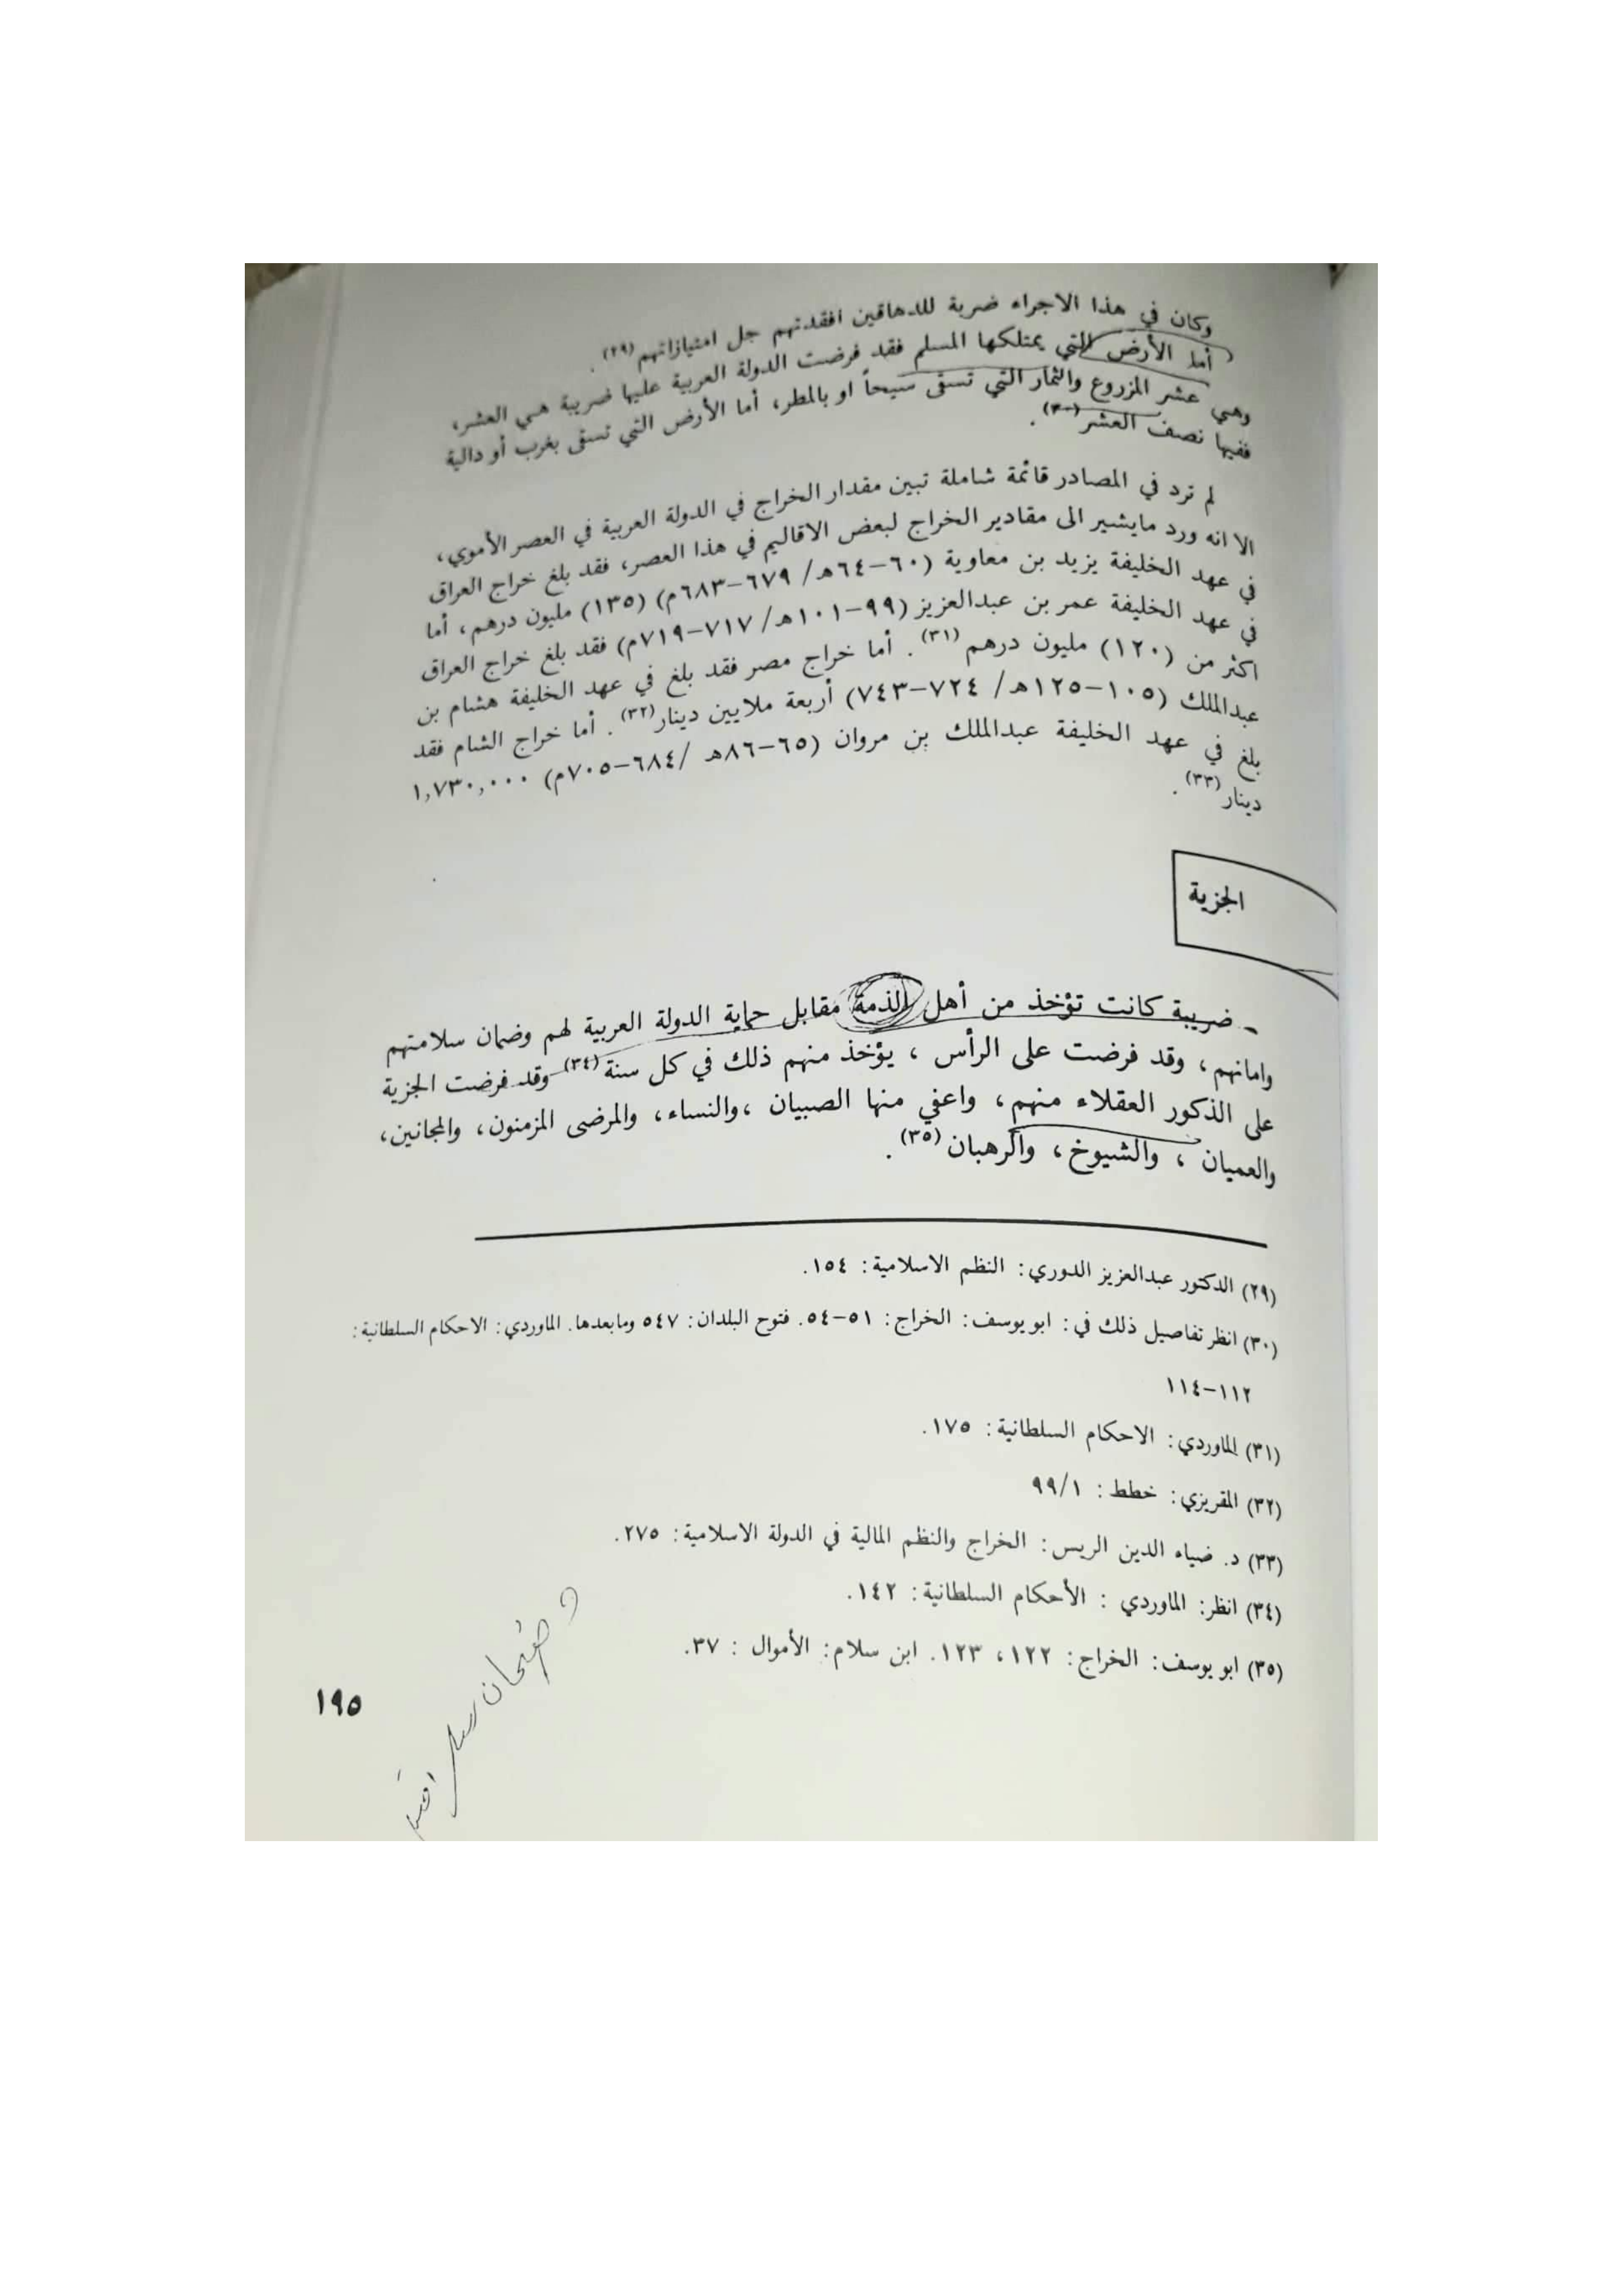 وكان في هذا الاجراء ضربة للدهاقين افقدتهم جل امتيازاتهم (٢٩).
أما الأرض التي يمتلكها المسلم فقد فرضت الدولة العربية عليها ضريبة هي العشر،
وهي عشر المزروع والثمار التي تسقى سيحاً او بالمطر، أما الأرض التي تسقى بغرب أو دالية
ففيها نصف العشر (٣٠).
لم ترد في المصادر قائمة شاملة تبين مقدار الخراج في الدولة العربية في العصر الأموي،
الا انه ورد مايشير الى مقادير الخراج لبعض الاقاليم في هذا العصر، فقد بلغ خراج العراق
في عهد الخليفة يزيد بن معاوية (٦٠-٦٤هـ/ ٦٧٩-٦٨٣م) (١٣٥) مليون درهم، أما
في عهد الخليفة عمر بن عبدالعزيز (٩٩-١٠١هـ/ ٧١٧-٧١٩م) فقد بلغ خراج العراق
اكثر من (١٢٠) مليون درهم (٣١). أما خراج مصر فقد بلغ في عهد الخليفة هشام بن
عبدالملك (١٠٥-١٢٥هـ/ ٧٢٤-٧٤٣) أربعة ملايين دينار (٣٢). أما خراج الشام فقد
بلغ في عهد الخليفة عبدالملك بن مروان (٦٥-٨٦هـ /٦٨٤-٧٠٥م) ١,٧٣٠,٠٠٠
دينار (٣٣).
الجزية
ضريبة كانت تؤخذ من أهل الذمة مقابل حماية الدولة العربية لهم وضمان سلامتهم
وامانهم، وقد فرضت على الرأس ، يؤخذ منهم ذلك في كل سنة (٣٤) وقد فرضت الجزية
على الذكور العقلاء منهم، واعفي منها الصبيان ،والنساء، والمرضى المزمنون، والمجانين،
والعميان ، والشيوخ ، والرهبان (٣٥).
(٢٩) الدكتور عبدالعزيز الدوري: النظم الاسلامية: ١٥٤.
(٣٠) انظر تفاصيل ذلك في: ابو يوسف: الخراج: ٥١-٥٤. فتوح البلدان: ٥٤٧ ومابعدها. الماوردي: الاحكام السلطانية:
١١٢-١١٤
(٣١) الماوردي: الاحكام السلطانية: ١٧٥.
(٣٢) المقريزي: خطط: ٩٩/١
(٣٣) د. ضياء الدين الريس: الخراج والنظم المالية في الدولة الاسلامية: ٢٧٥.
(٣٤) انظر: الماوردي : الأحكام السلطانية: ١٤٢.
(٣٥) ابو يوسف: الخراج: ١٢٢، ١٢٣. ابن سلام: الأموال : ٣٧.
١٩٥